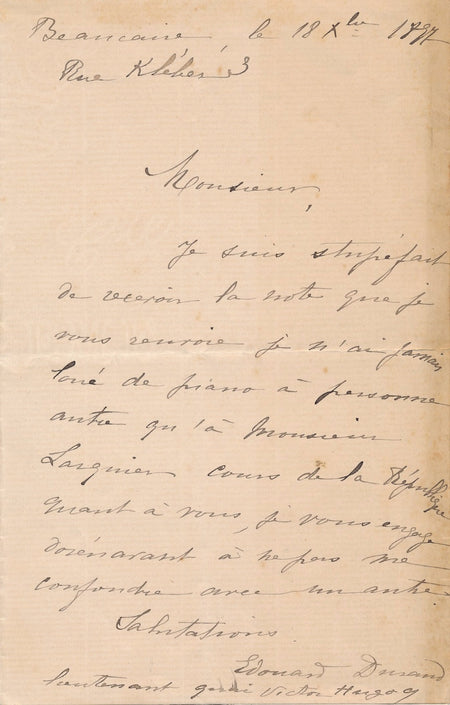 Beaucaire, le 18 Xbre 1897
Rue Kléber 3
Monsieur,
Je suis stupéfait
de recevoir la note que je
vous renvoie je n'ai jamais
loué de piano à personne
autre qu'à Monsieur
Larguier cours de la République
quant à vous, je vous engage
dorénavant à ne pas me
confondre avec un autre.
Salutations
Edouard Durand
lieutenant quai Victor Hugo 9